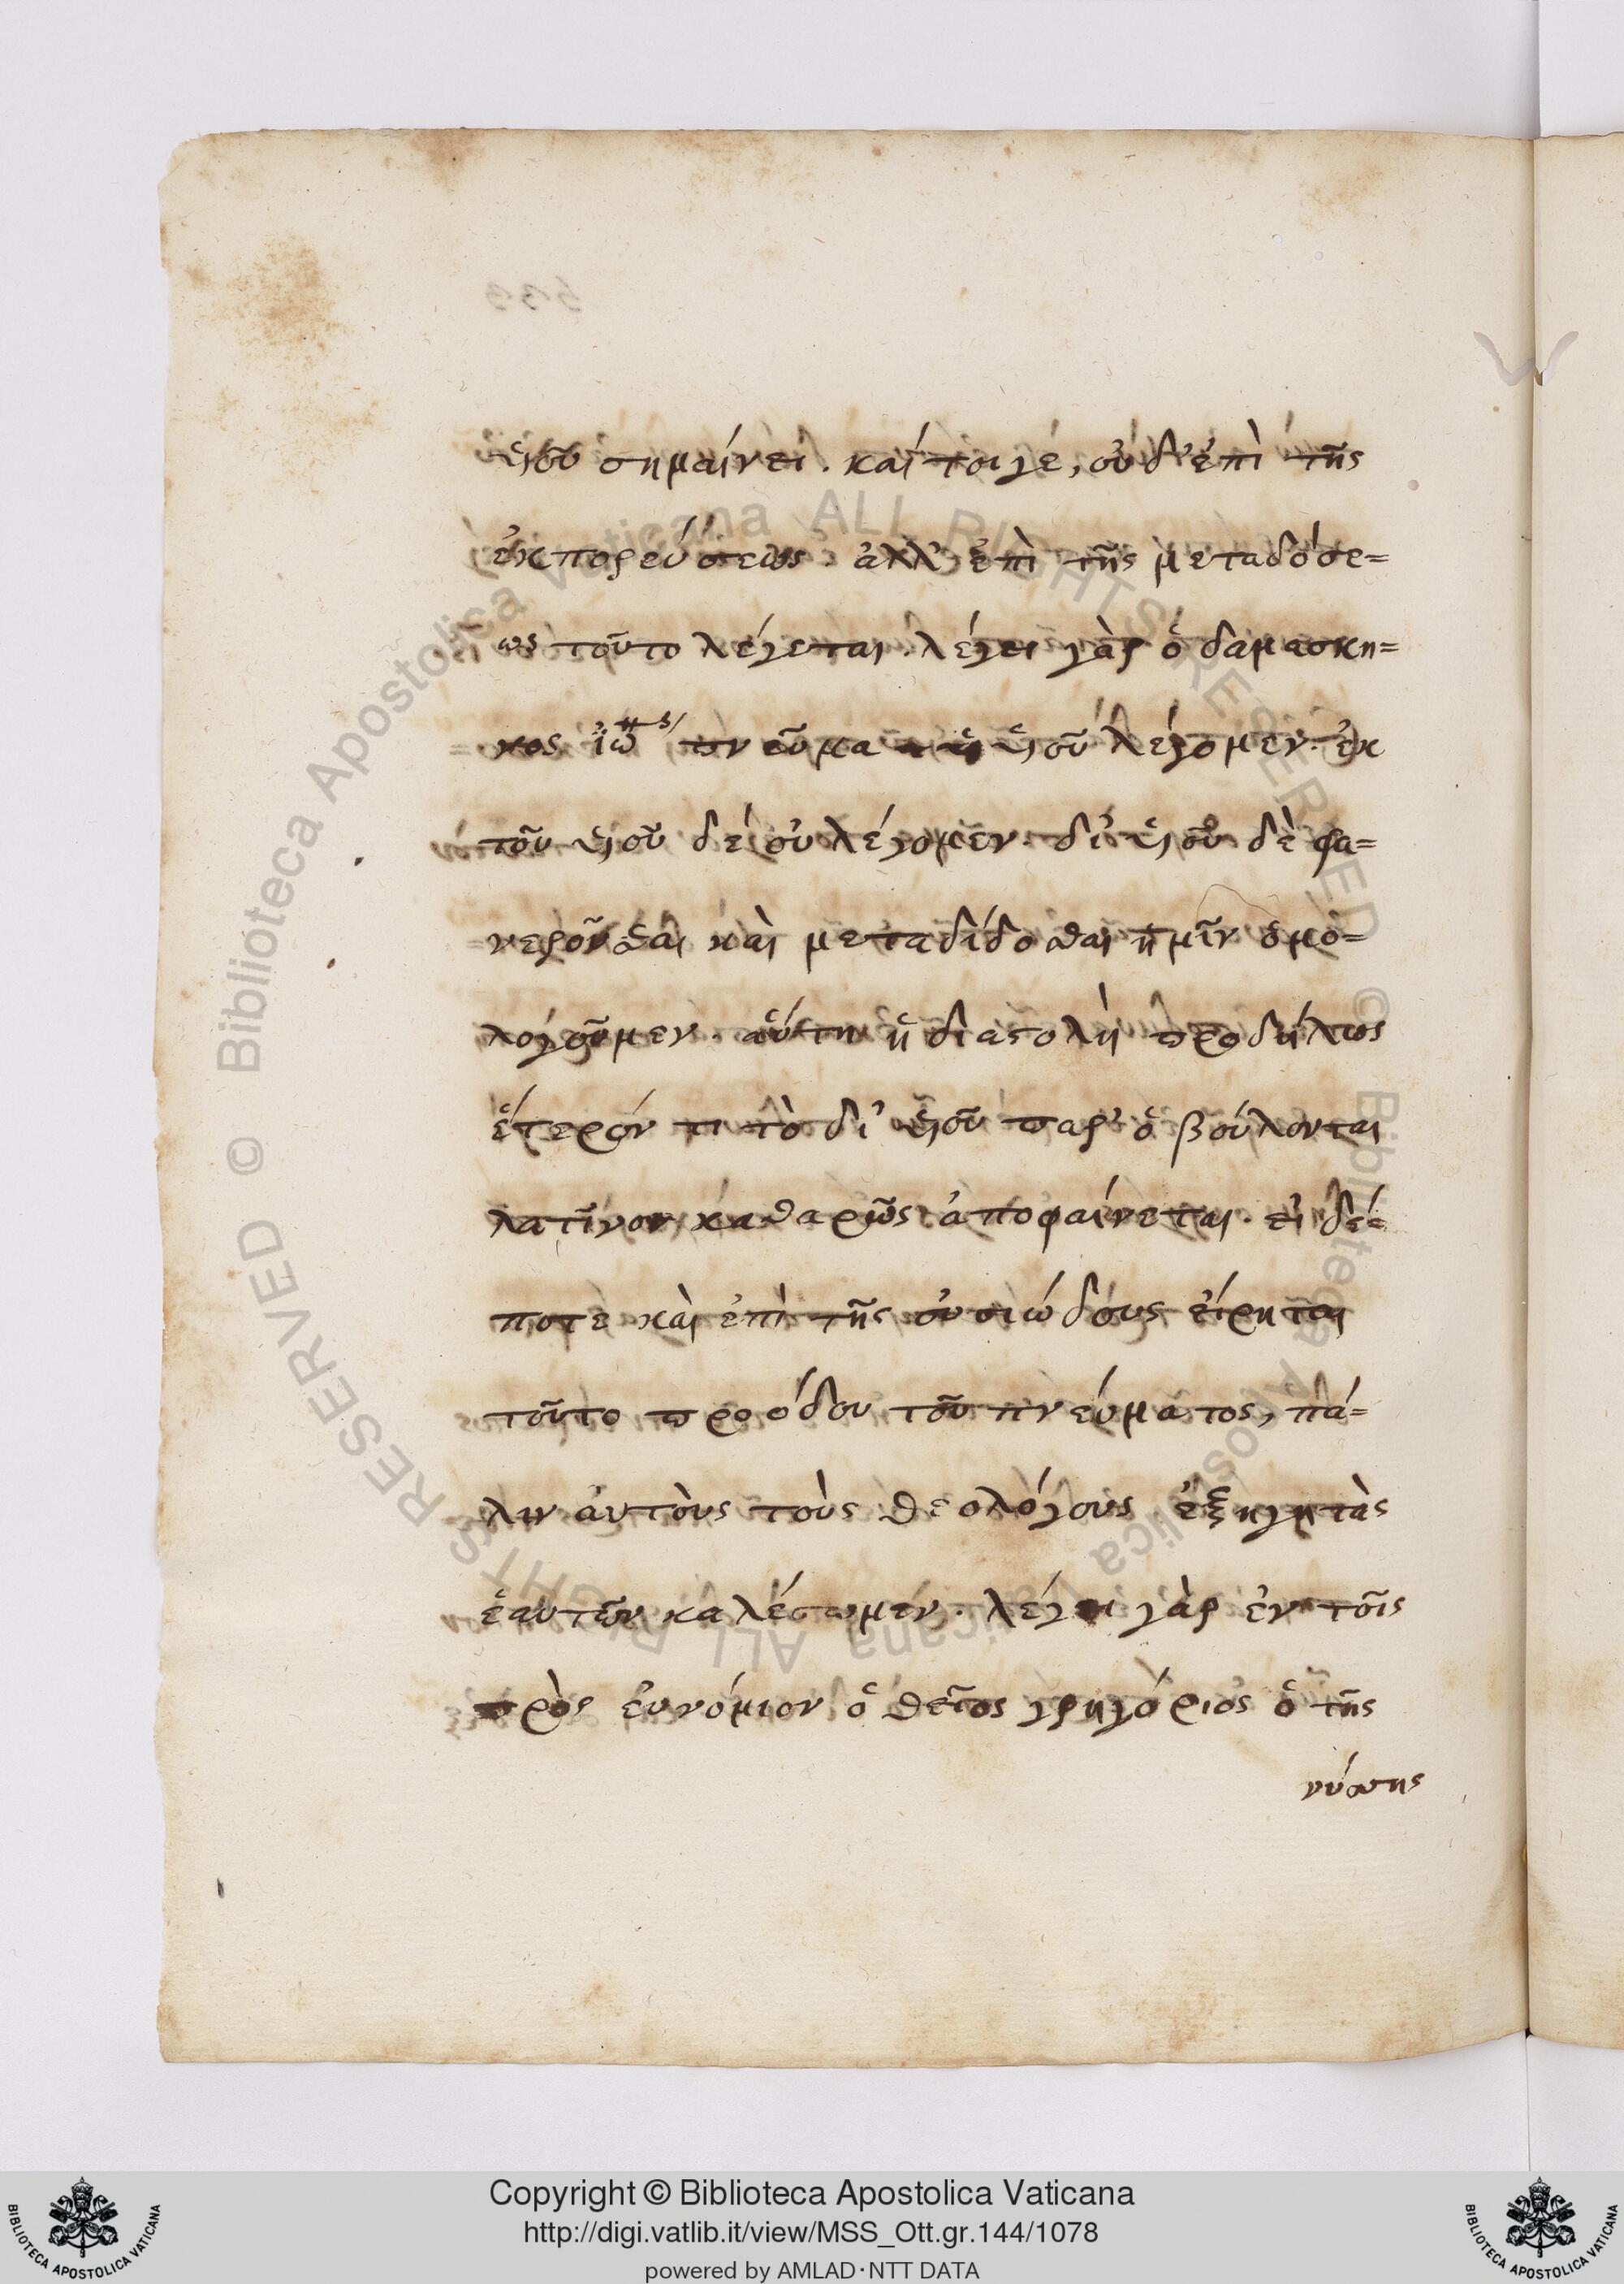 υἱοῦ σημαίνει. καίτοιγέ, οὐδ' ἐπὶ τῆς
ἐκπορεύσεως. ἀλλ' ἐπὶ τῆς μεταδόσε=
ως τοῦτο λέγεται. λέγει γὰρ ὁ δαμασκη=
νος ἰω̅ης πνεῦμα υἱοῦ λέγομεν. ἐκ
τοῦ υἱοῦ δὲ οὐ λέγομεν. δι' υἱοῦ δὲ φα=
νεροῦσθαι καὶ μεταδίδοσθαι ἡμῖν ὁμο=
λογοῦμεν. αὕτη ἡ διαστολὴ προδήλως
ἕτερόν τι τὸ δι' υἱοῦ παρ' ὃ βούλονται
λατῖνοι καθαρῶς ἀποφαίνεται. εἰ δέ=
ποτε καὶ ἐπὶ τῆς οὐσιώδους εἴρηται
τοῦτο προόδου τοῦ πνεύματος, πά=
λιν ἀυτοὺς τοὺς θεολόγους ἐξηγητὰς
ἑαυτῶν καλέσωμεν. λέγει γὰρ ἐν τοῖς
πρὸς ἐυνόμιον ὁ θεῖος γρηγόριος ὁ τῆς
νύσσης
Copyright © Biblioteca Apostolica Vaticana
http://digi.vatlib.it/view/MSS_Ott.gr.144/1078
powered by AMLAD·NTT DATA
BIBLIOTECA APOSTOLICA VATICANA
BIBLIOTECA APOSTOLICA VATICANA
© Biblioteca Apostolica Vaticana ALL RIGHTS RESERVED
© Biblioteca Apostolica Vaticana ALL RIGHTS RESERVED